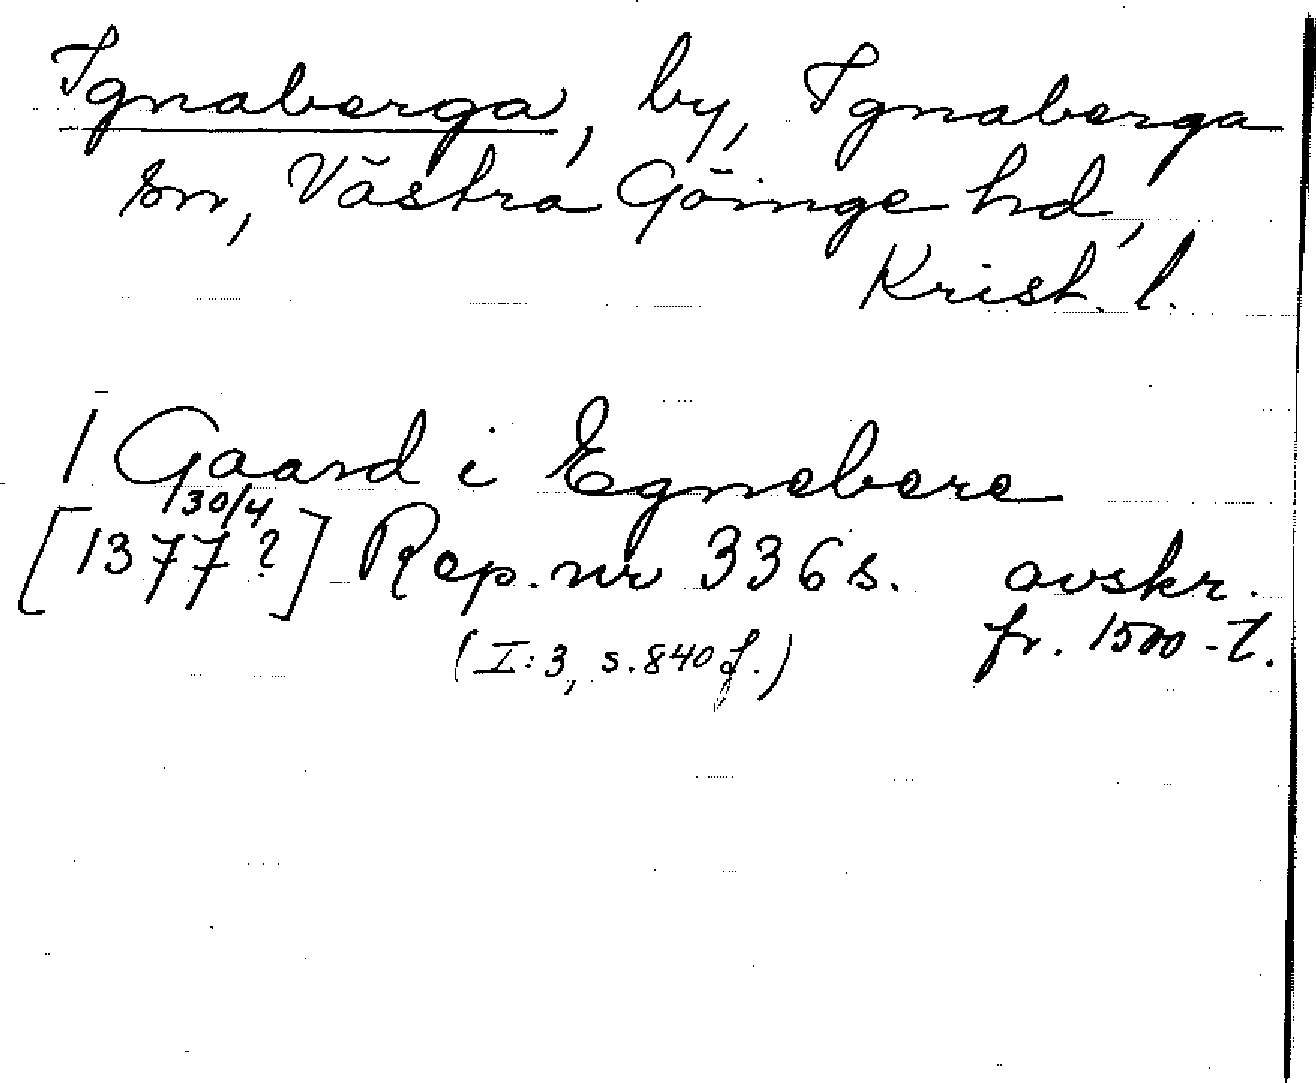 Ignaberga, by, Ignaberga
sn, Västra Göinge hd,
Krist. l.
1 Gaard i Egnebere
30/4
[1377?] Rep. nr 336 s. avskr.
fr. 1500-t.
(I:3, s. 840 f.)